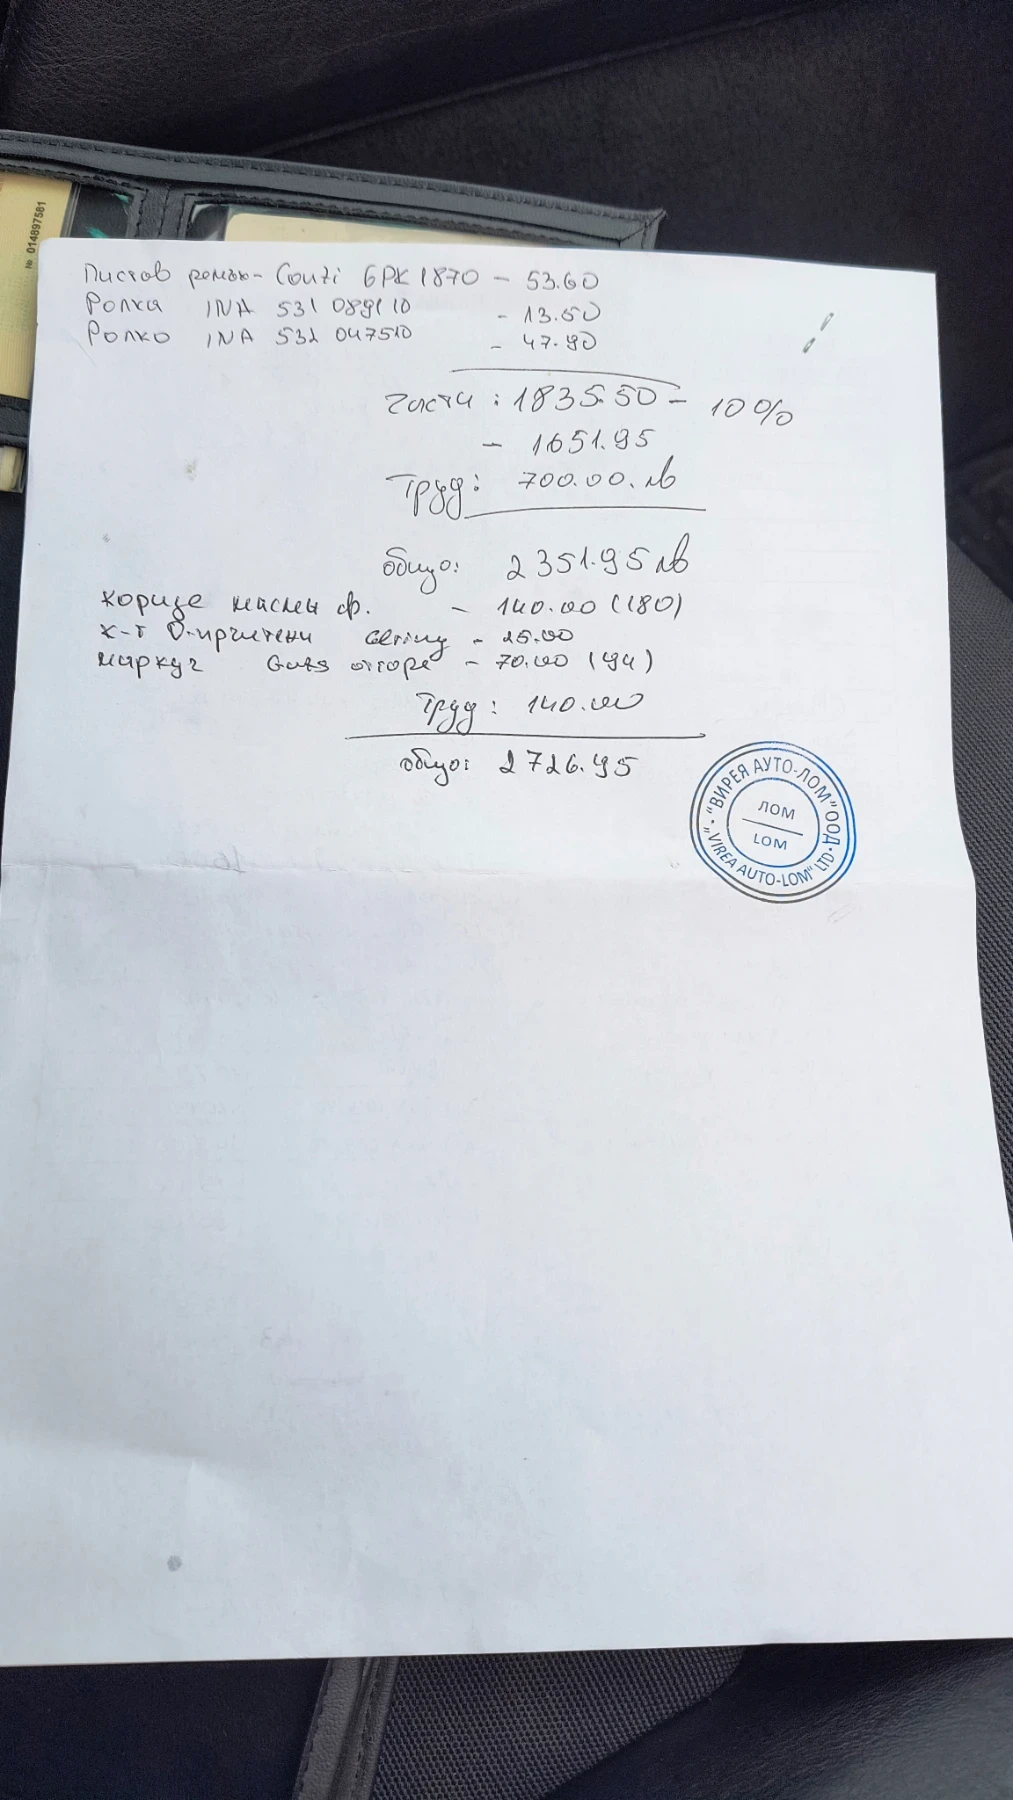 № 014897581
Пистов ремък - Conti 6PK 1870 - 53.60
Ролка INA 531 0891 10 - 13.50
Ролка INA 532 0475 10 - 47.90
части: 1835.50 - 10%
- 1651.95
Труд: 700.00. лв
общо: 2351.95 лв
корпус маслен ф. - 140.00 (180)
к-т О-пръстени Elring - 25.00
маркуч Gates - 70.00 (94)
Труд: 140.00
общо: 2726.95
"ВИРЕЯ АУТО-ЛОМ" ООД
ЛОМ
LOM
"VIREA AUTO-LOM" LTD